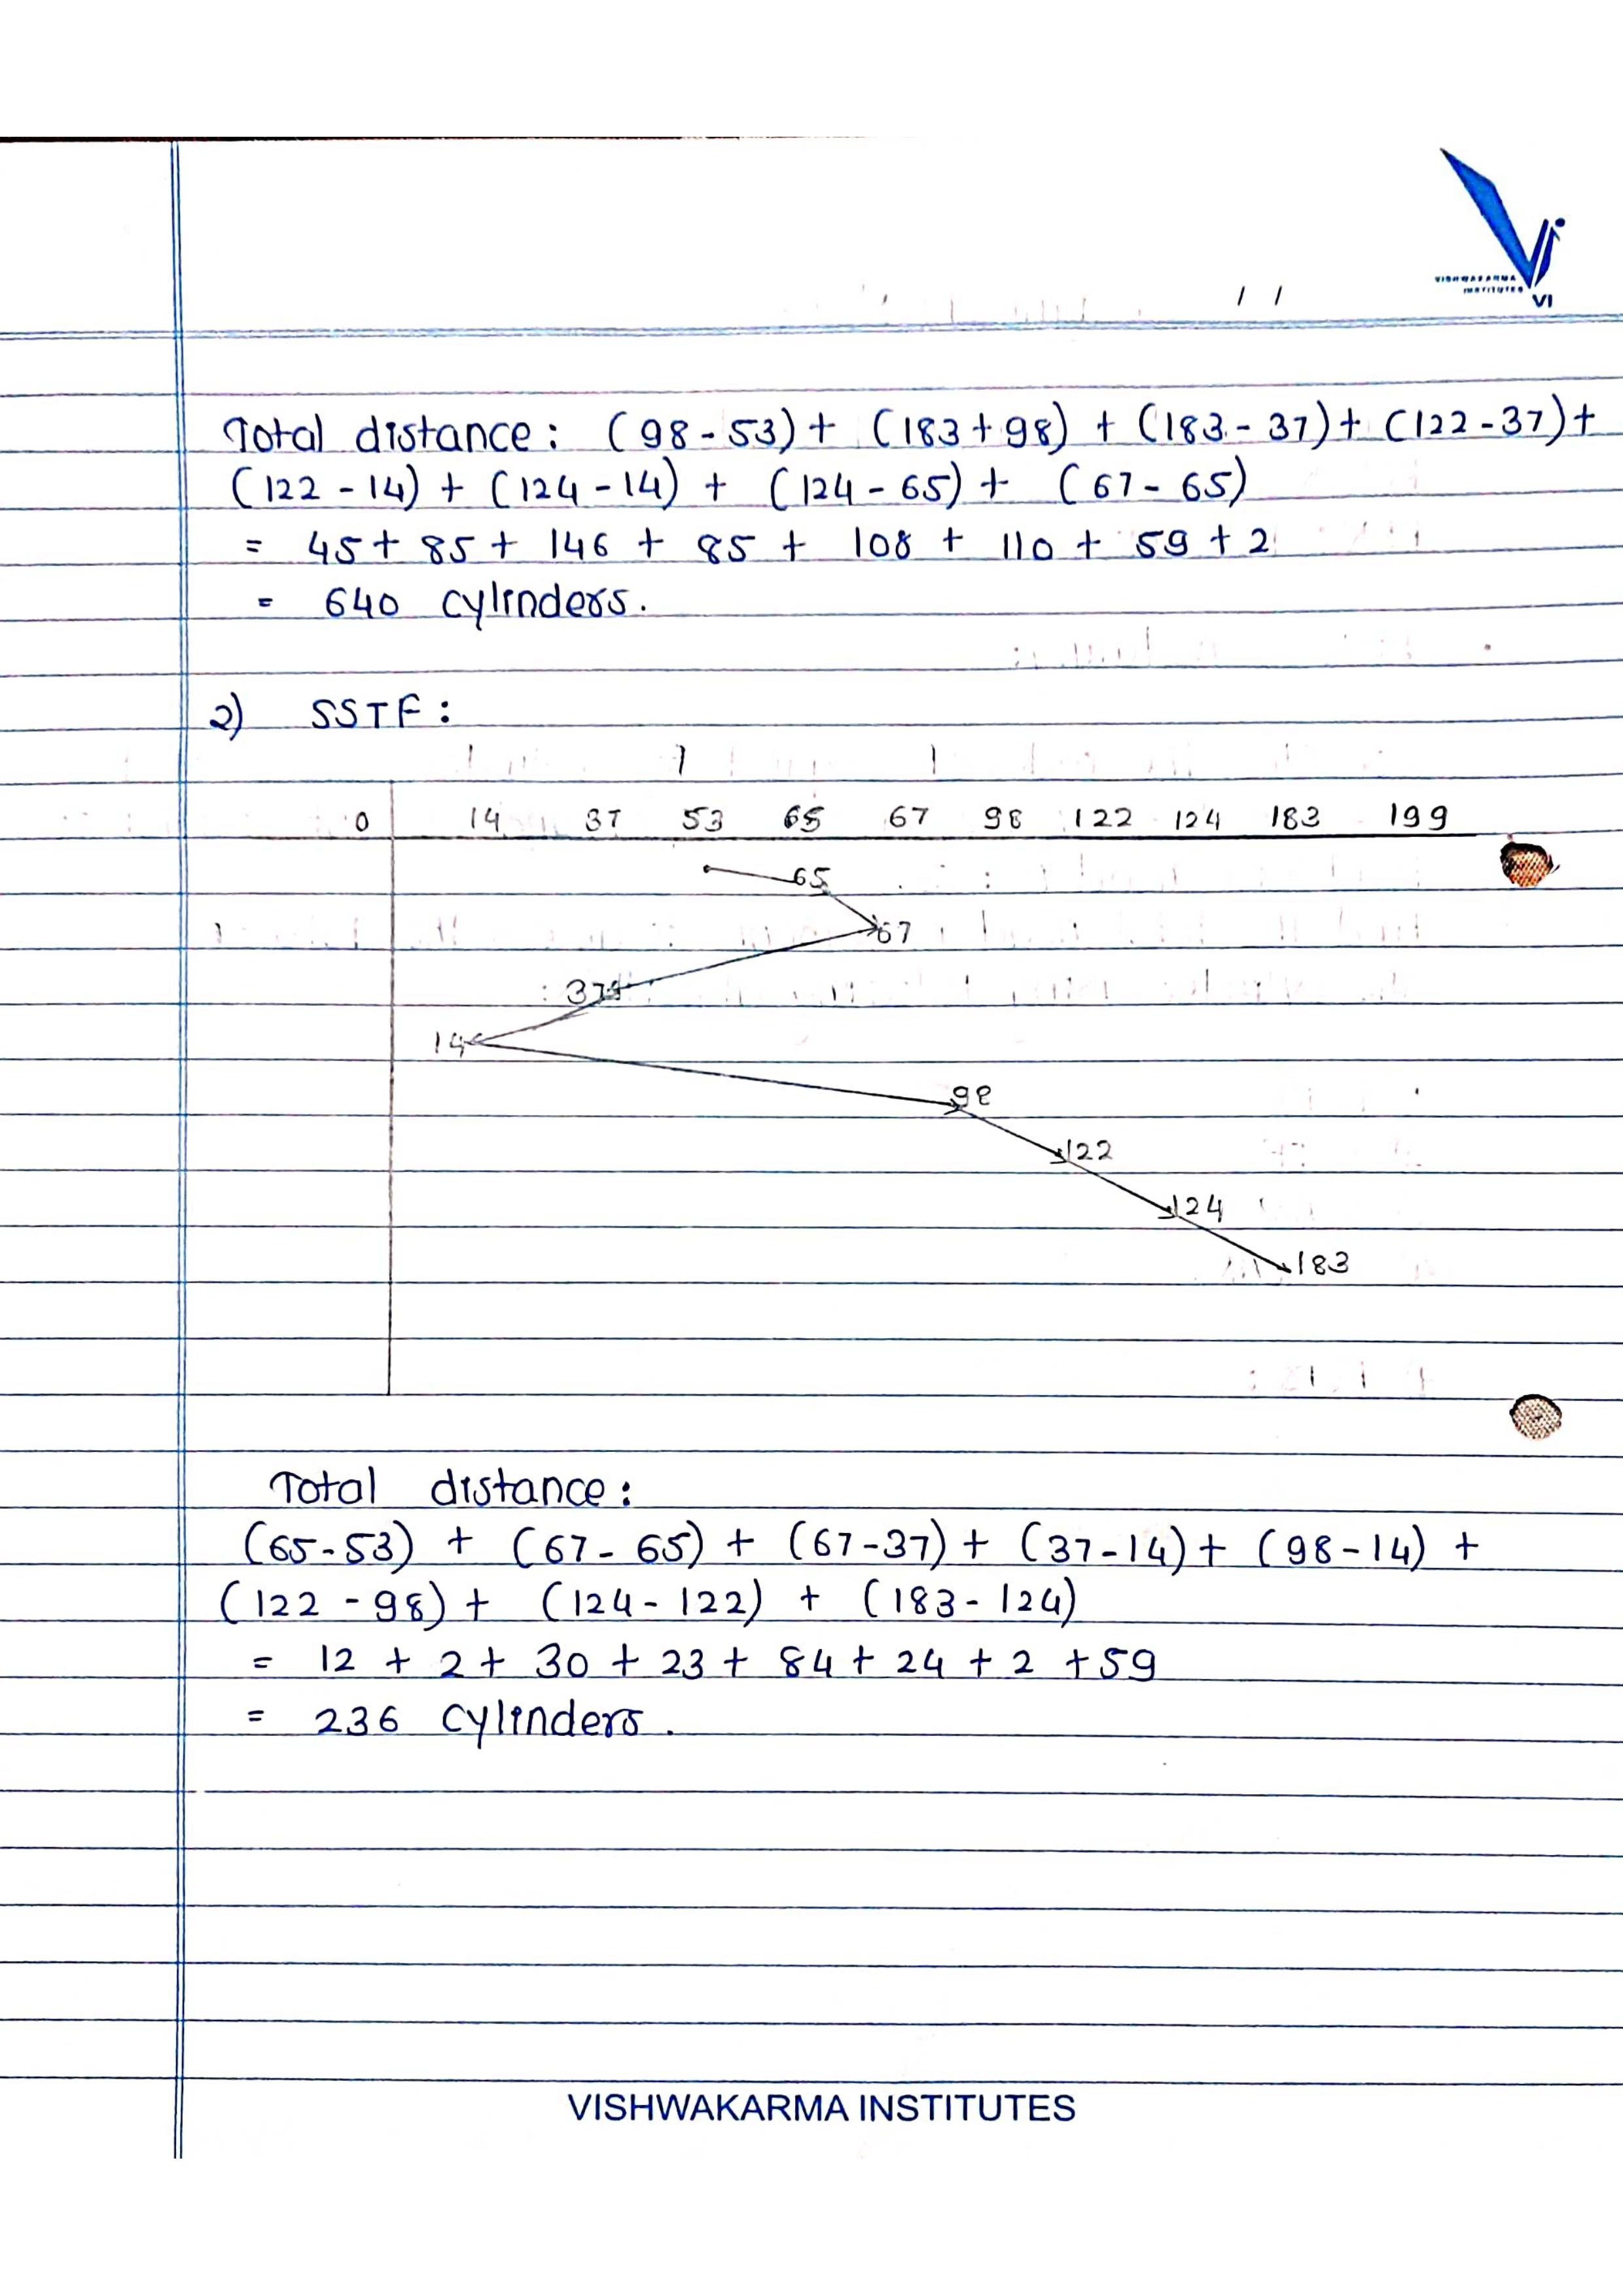 VISHWAKARMA
INSTITUTES VI
/ /
Total distance: (98-53)+ (183+98) + (183-37)+ (122-37)+
(122-14) + (124-14) + (124-65)+ (67-65)
= 45+ 85+ 146 + 85 + 108 + 110 + 59 +2
= 640 cylinders.
2) SSTF:
0 14 37 53 65 67 98 122 124 183 199
65
67
37
14
98
122
124
183
Total distance:
(65-53) + (67-65) + (67-37)+ (37-14)+ (98-14) +
(122-98)+ (124-122) + (183-124)
= 12 + 2+ 30 + 23+ 84+ 24 + 2 +59
= 236 cylinders.
VISHWAKARMA INSTITUTES